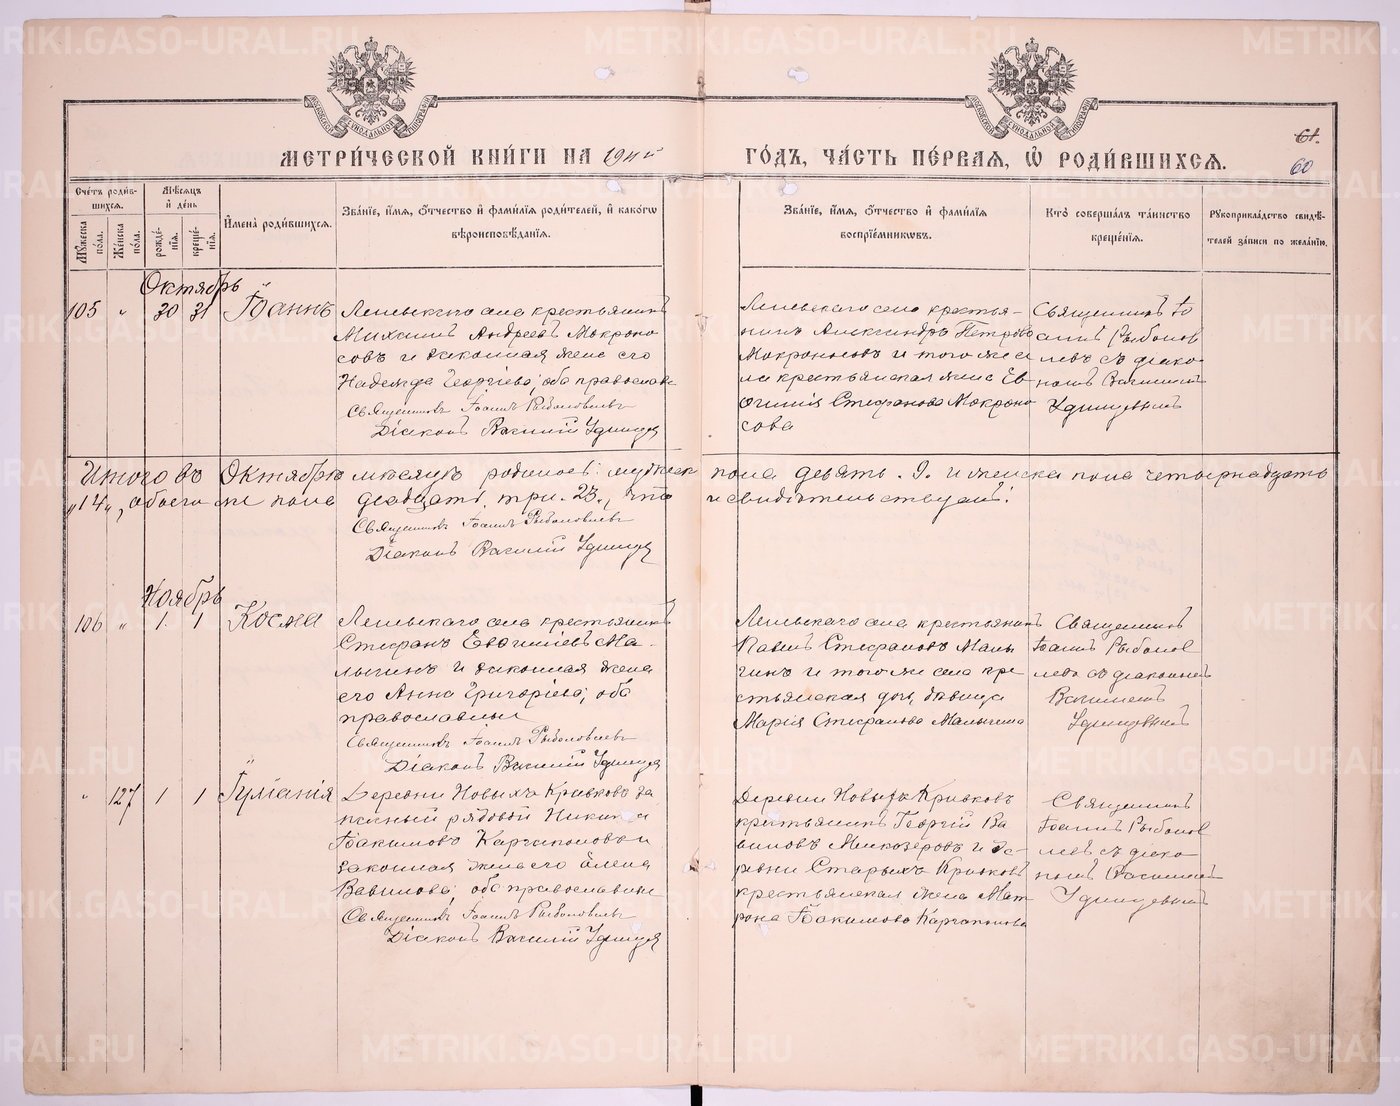 МЕТРИ́ЧЕСКОЙ КНИ́ГИ НА 1911й ГО́ДЪ, ЧА́СТЬ ПЕ́РВАЯ, Ѡ҆ РОДИ́ВШИХСЯ.
61.
60
Сче́тъ роди́вшихся.
Му́жеска по́ла.
Же́нска по́ла.
Мѣ́сяцъ и҆ де́нь
рожде́нїя.
креще́нїя.
И҆мена̀ роди́вшихся.
Зва́нїе, и҆́мя, о҆́тчество и҆ фами́лїя роди́телей, и҆ како́гѡ
вѣроисповѣ́данїя.
Зва́нїе, и҆́мя, о҆́тчество и҆ фами́лїя
воспрїе́мникѡвъ.
Кто̀ соверша́лъ та́инство
креще́нїя.
Рꙋкоприкла́дство свидѣ́-
телей за́писи по жела́нїю.
Октябрь
105 " 30 31 Іоаннъ
села крестьянинъ
Михаилъ Андреевъ Мокроно-
совъ и законная жена его
Надежда Георгіева; оба православн
Священникъ Іоаннъ Рыболовлевъ
Діаконъ Василій Удинцев
села кресть-
нинъ Александръ Петровъ
Мокроносовъ и того же се
ла крестьянская жена Ев
Стефанова Мокроно
сова
Священникъ Іо
аннъ Рыболов
левъ съ діако
номъ Василіемъ
Удинцевымъ
Итого въ Октябрѣ мѣсяцѣ родилось: мужеск пола девять. 9. и женска пола четырнадцать
"14", обоего же пола двадцать три. 23., что и свидѣтельствуемъ:
Священникъ Іоаннъ Рыболовлевъ
Діаконъ Василій Удинцев
Ноябрь
106 " 1 1 Косма
села крестьянинъ
Стефанъ Евѳиміевъ Ма-
лыгинъ и законная жена
его Анна Григоріева; оба
православные
Священникъ Іоаннъ Рыболовлевъ
Діаконъ Василій Удинцев
села крестьянинъ
Павелъ Стефановъ Малы
гинъ и того же села кре-
стьянская дочь, дѣвица
Марія Стефанова Малыгина
Священникъ
Іоаннъ Рыболов
левъ съ діакономъ
Василіемъ
Удинцевымъ
" 127 1 1 Іуліанія
Деревни Новыхъ Кривковъ за
пасный рядовой Никита
Іоакимовъ Каргаполовъ и
законная жена его Елена
Вавилова; оба православные
Священникъ Іоаннъ Рыболовлевъ
Діаконъ Василій Удинцев
Деревни Новыхъ Кривковъ
крестьянинъ Георгій Ва
виловъ и де-
ревни Старыхъ Кривковъ
крестьянская жена Мат
рона Іоакимова
Священникъ
Іоаннъ Рыболов
левъ съ діако
номъ Василіемъ
Удинцевымъ
METRIKI.GASO-URAL.RU